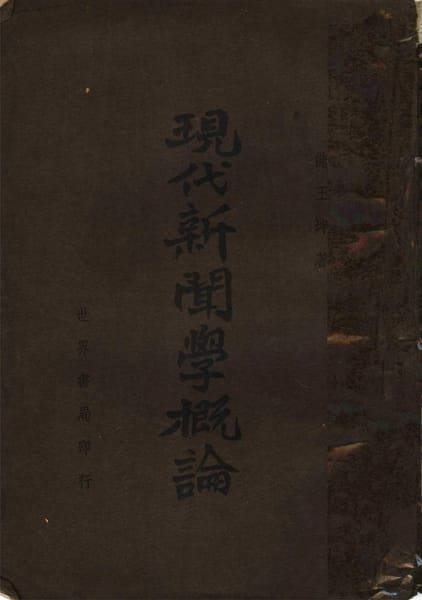 儲玉坤著
現代新聞學概論
世界書局印行